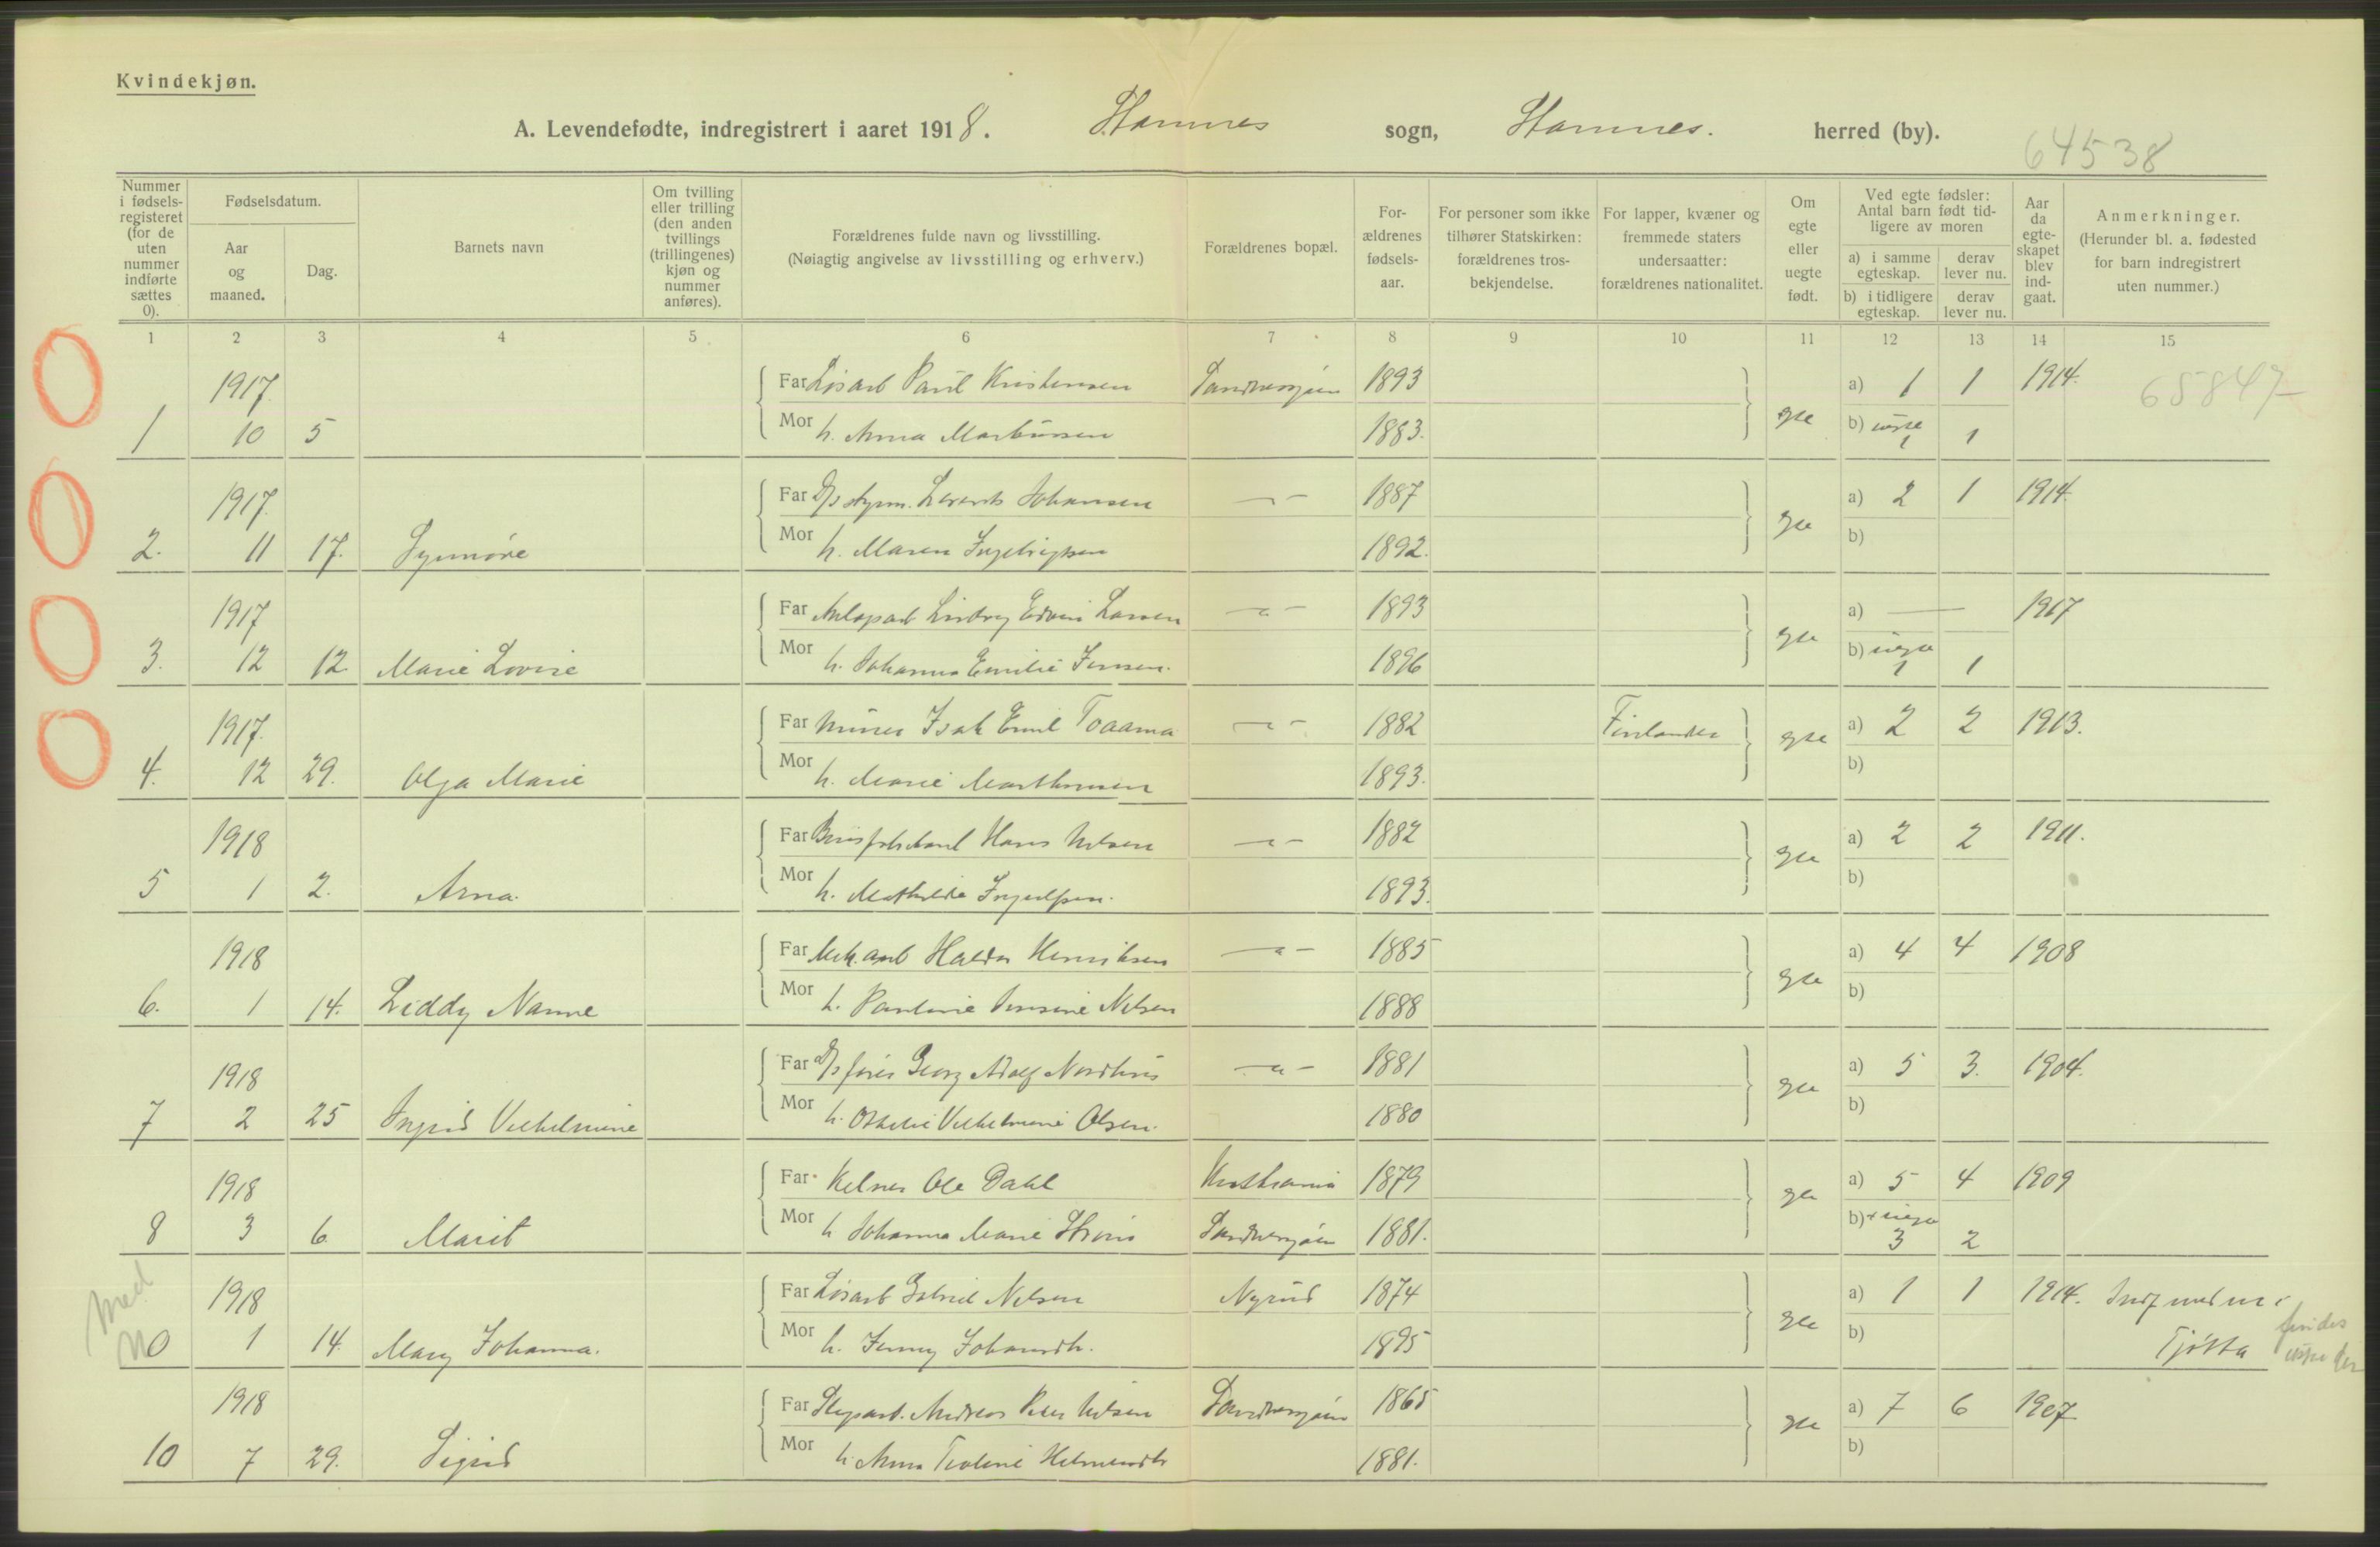 Kvindekjøn.
A. Levendefødte, indregistrert i aaret 1918. Stamnes sogn, Stamnes. herred (by).
64538
Nummer i fødsels-registeret (for de uten nummer indførte sættes 0).
Fødselsdatum.
Aar og maaned.
Dag.
Barnets navn
Om tvilling eller trilling (den anden tvillings (trillingenes) kjøn og nummer anføres).
Forældrenes fulde navn og livsstilling.
(Nøiagtig angivelse av livsstilling og erhverv.)
Forældrenes bopæl.
For-ældrenes fødsels-aar.
For personer som ikke tilhører Statskirken: forældrenes tros-bekjendelse.
For lapper, kvæner og fremmede staters undersaatter: forældrenes nationalitet.
Om egte eller uegte født.
Ved egte fødsler: Antal barn født tid-ligere av moren
a) i samme egteskap.
derav lever nu.
b) i tidligere egteskap.
derav lever nu.
Aar da egte-skapet blev ind-gaat.
Anmerkninger.
(Herunder bl. a. fødested for barn indregistrert uten nummer.)
1 2 3 4 5 6 7 8 9 10 11 12 13 14 15
1917. Far Løsarb Paul Kristensen Sandnessjøen 1893 a) 1 1 1914. 65847
1 10 5 Mor h. Anna 1883. gte b) 1 1
1917. Far Johansen 1887 a) 2 1 1914.
2. 11 17. Synnøve Mor h. Maren Ingebrigtsen 1892. gte b)
1917 Far Ludvig Edvin Larsen 1893 a) — 1917
3. 12 12 Marie Lovise Mor h. Johanna Emilie Jensen. 1896 gte b) 1 1
1917. Far Miner Isak Emil Toaama 1882 Finlander a) 2 2 1913.
4. 12 29. Olga Marie Mor h. Marie Marthinsen 1893. gte b)
1918 Far Hans Nilsen 1882 a) 2 2 1911.
5 1 2. Arna. Mor h. Mathilde 1893. gte b)
1918 Far Mek. arb Haldor Henriksen 1885 a) 4 4 1908
6. 1 14. Liddy Nanne Mor h. Pauline Jensine Nilsen 1888 gte b)
1918 Far D/s fører Georg Adolf Nordhus 1881 a) 5 3. 1904.
7 2 25 Ingrid Vilhelmine Mor h. Othelie Vilhelmine Olsen. 1880 gte b)
1918 Far Kelner Ole Dahl Kristiania 1879 a) 5 4 1909
8 3 6. Marit Mor h Johanna Marie Sandnessjøen 1881. gte b) 3 2
med no
1918 Far Løsarb Gabriel Nilsen Nyrud 1874 a) 1 1 1914.
0 1 14. Mary Johanna. Mor h. Jenny Johansdtr. 1895 gte b) Tjøtta
findes
1918 Far Andreas Peter Nilsen Sandnessjøen 1865 a) 7 6 1907
10 7 29. Sigrid Mor h. Anna 1881. gte b)